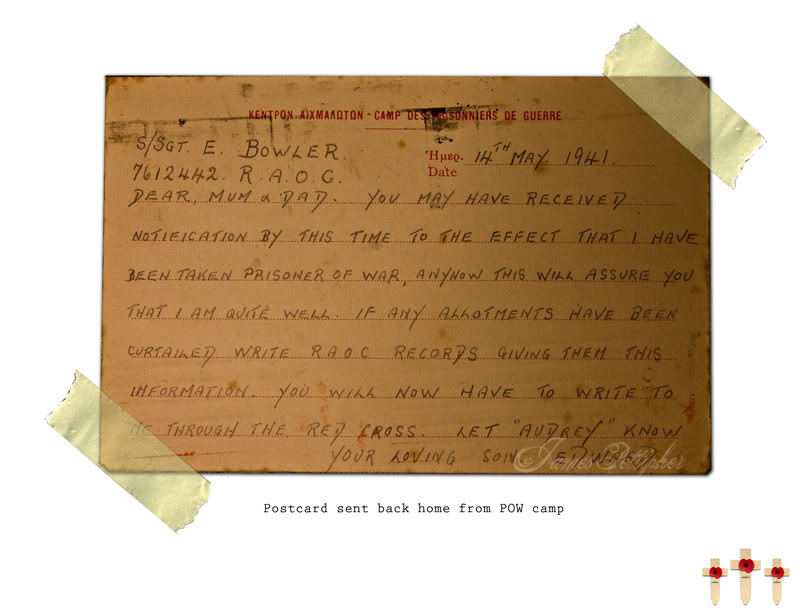 ΚΕΝΤΡΟΝ ΑΙΧΜΑΛΩΤΩΝ - CAMP DES PRISONNIERS DE GUERRE
S/SGT. E. BOWLER.
Ἡμερ. 14TH MAY. 1941.
7612442. R.A.O.C.
Date
DEAR, MUM & DAD. YOU MAY HAVE RECEIVED
NOTIFICATION BY THIS TIME TO THE EFFECT THAT I HAVE
BEEN TAKEN PRISONER OF WAR, ANYHOW THIS WILL ASSURE YOU
THAT I AM QUITE WELL. IF ANY ALLOTMENTS HAVE BEEN
CURTAILED WRITE R A O C RECORDS GIVING THEM THIS
INFORMATION. YOU WILL NOW HAVE TO WRITE TO
ME THROUGH THE RED CROSS. LET "AUDREY" KNOW
YOUR LOVING SON. EDWARD
James Kettipher
Postcard sent back home from POW camp